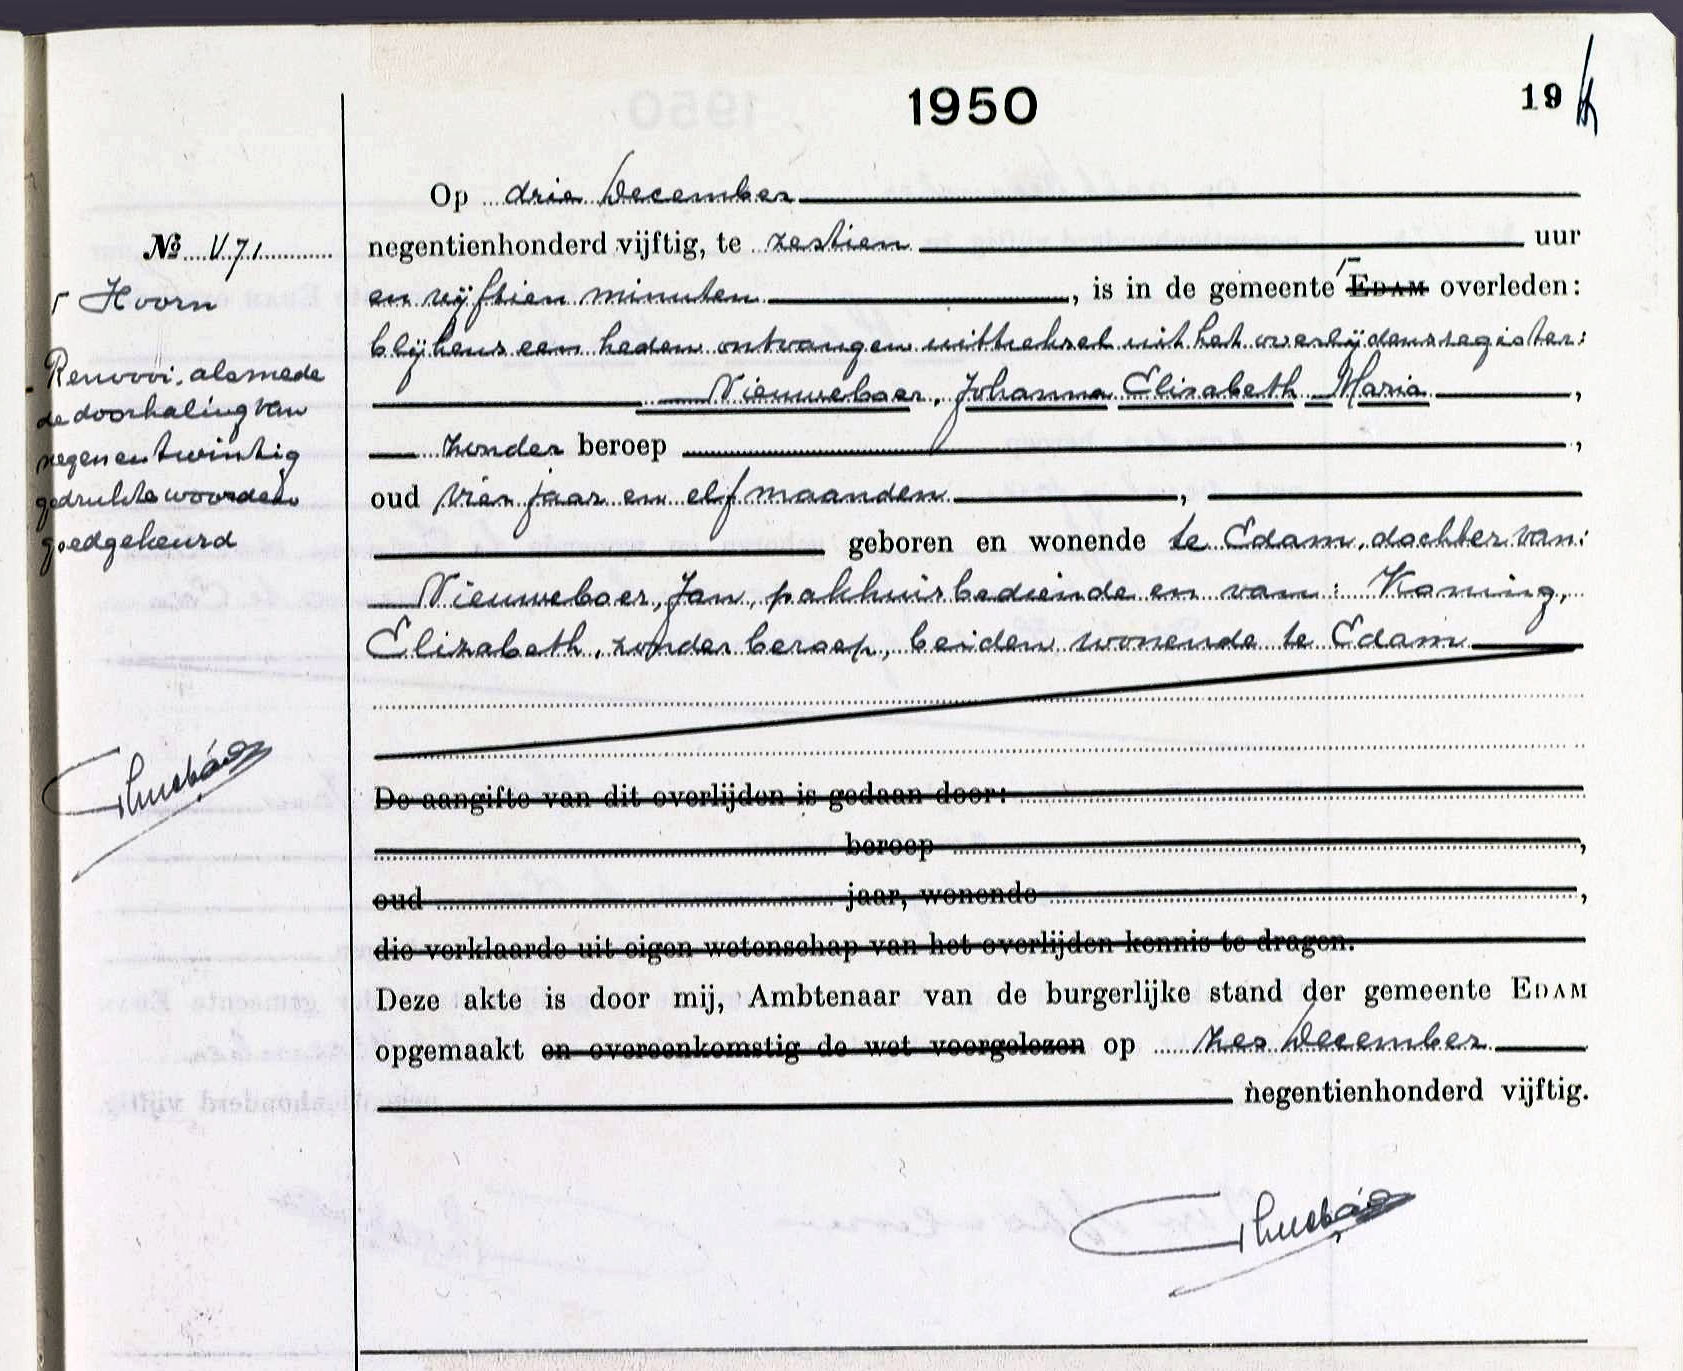 1950
19
Op drie December
Nº V.71
negentienhonderd vijftig, te zestien uur
Hoorn
en vijftien minuten, is in de gemeente EDAM overleden:
blijkens een heden ontvangen uittreksel uit het overlijdensregister:
Nieuweboer, Johanna Elizabeth Maria,
zonder beroep,
oud vier jaar en elf maanden,
geboren en wonende te Edam, dochter van:
Nieuweboer, Jan, pakhuisbediende en van: Koning,
Elizabeth, zonder beroep, beiden wonende te Edam
Renvooi, alsmede
de doorhaling van
negen en twintig
gedrukte woorden
goedgekeurd
De aangifte van dit overlijden is gedaan door:
beroep,
oud jaar, wonende,
die verklaarde uit eigen wetenschap van het overlijden kennis te dragen.
Deze akte is door mij, Ambtenaar van de burgerlijke stand der gemeente EDAM
opgemaakt en overeenkomstig de wet voorgelezen op zes December
negentienhonderd vijftig.